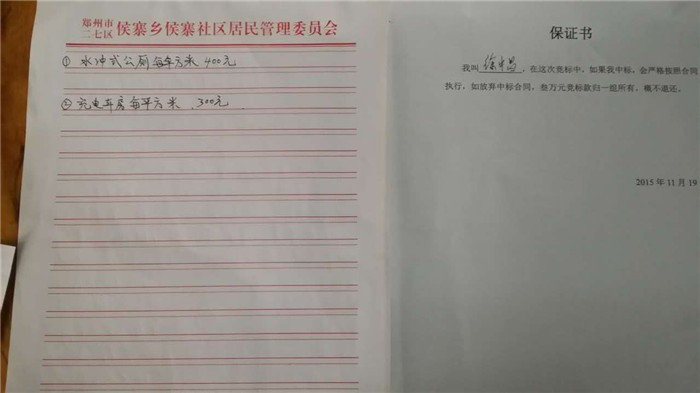 郑州市
二七区 侯寨乡侯寨社区居民管理委员会
① 水冲式公厕每平方米 400元
② 充电车房每平方米 300元
保证书
我叫 徐中昌,在这次竞标中,如果我中标,会严格按照合同
执行,如放弃中标合同,叁万元竞标款归一组所有,概不退还。
2015 年 11 月 19